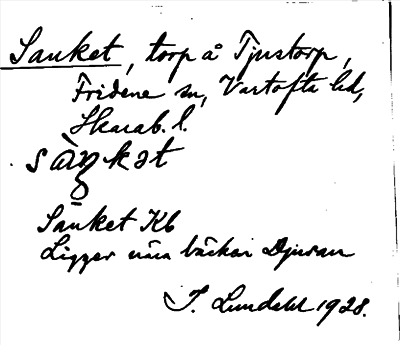 Sanket, torp å Tjustorp,
Fridene sn, Vartofta hd,
Skarab. l.
sàŋkət
Sanket Kb
Ligger nära bäcken Djuran
J. Lundahl 1928.